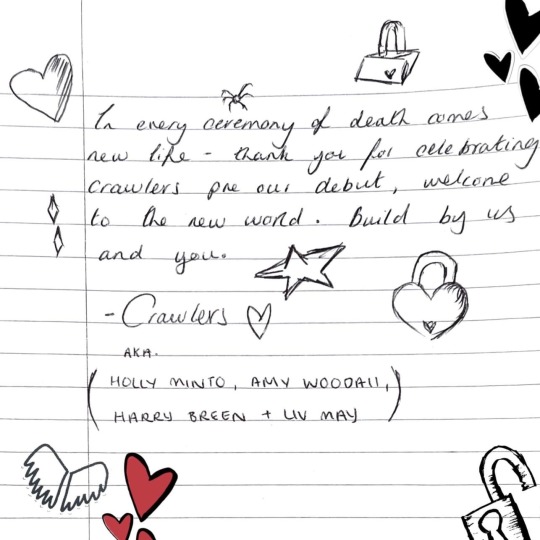 In every ceremony of death comes
new life - thank you for celebrating
Crawlers pre our debut, welcome
to the new world. Build by us
and you.
- Crawlers
AKA.
(HOLLY MINTO, AMY WOODALL,
HARRY BREEN + LIV MAY)